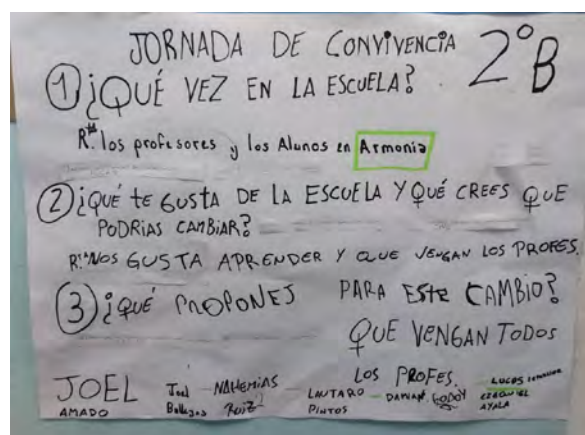 JORNADA DE CONVIVENCIA 2°B
① ¿QUÉ VEZ EN LA ESCUELA?
Rta. los profesores y los Alunos en Armonia
② ¿QUÉ te GUSTA DE LA ESCUELA Y QUÉ CREES QUE
PODRIAS CAMBIAR?
Rta. NOS GUSTA APRENDER Y QUE VENGAN LOS PROFES.
③ ¿QUÉ PROPONES PARA ESte CAMBIO?
QUE VENGAN TODOS
LOS PROFES.
JOEL AMADO
Joel
NAHEMIAS RUIZ
LAUTARO PINTOS
DAMIAN GODOY
LUCAS
EZEQUIEL AYALA